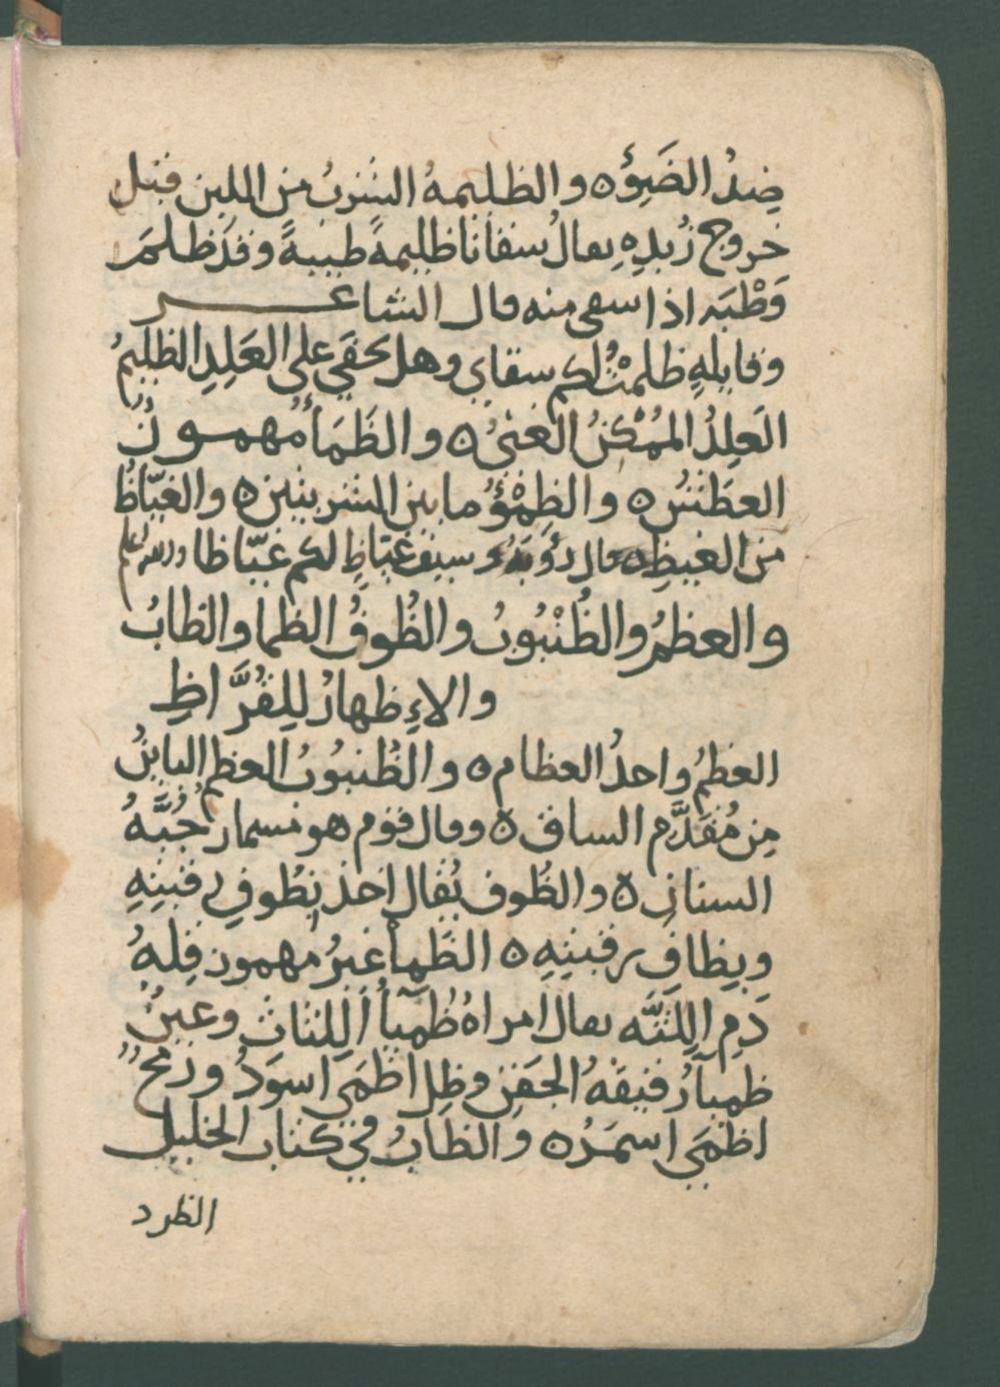 ضِدُ الضَوْءِ ه والظليمهُ الشربُ من اللبن قبل
خروج زُبدِهِ يقالُ سقانا ظليمةً طيبةً وقد ظلمَ
وَطْبَه اذا سقى منه قال الشاعر
وقايلهٍ ظلمتُ لكم سقاى وهل يخفى على العَكِدِ الظليمُ
العَكِدُ المُمْكنُ الغنىُ ه والظَمَأُ مهموزٌ
العطَشُ ه والظِمْؤُ ما بين الشربين ه والغيّاظُ
من الغيظِ ه قال رؤبَهُ وسيف غيّاظٍ لكم غيّاظا والله اعلم
والعظمُ والظُنْبُوبُ والظُوفُ الظما والظابُ
والاءِظهارُ للِقُرَّاظِ
العظمُ واحدُ العظام ه والظُنبوُبُ العظمُ اليابسُ
مِن مُقدَّم الساق ه وقال قوم هو مسمار جُبَّهُ
السنان ه والظُوف يُقال اخذ بظُوفِ رقبتِهِ
وبِظافِ رقبتِهِ ه الظَما غيرُ مهموز قِلهُ
دَمِ اللِثَّه يقال امراهُ ظَمْيآُ اللثاث وعينٌ
ظميآُ رقيقهُ الجَفنِ وظِل اظمَى اسوَدُ ورمحٌ
اظمَى اسمَرُ ه والظابُ في كتاب الخليل
الظرد